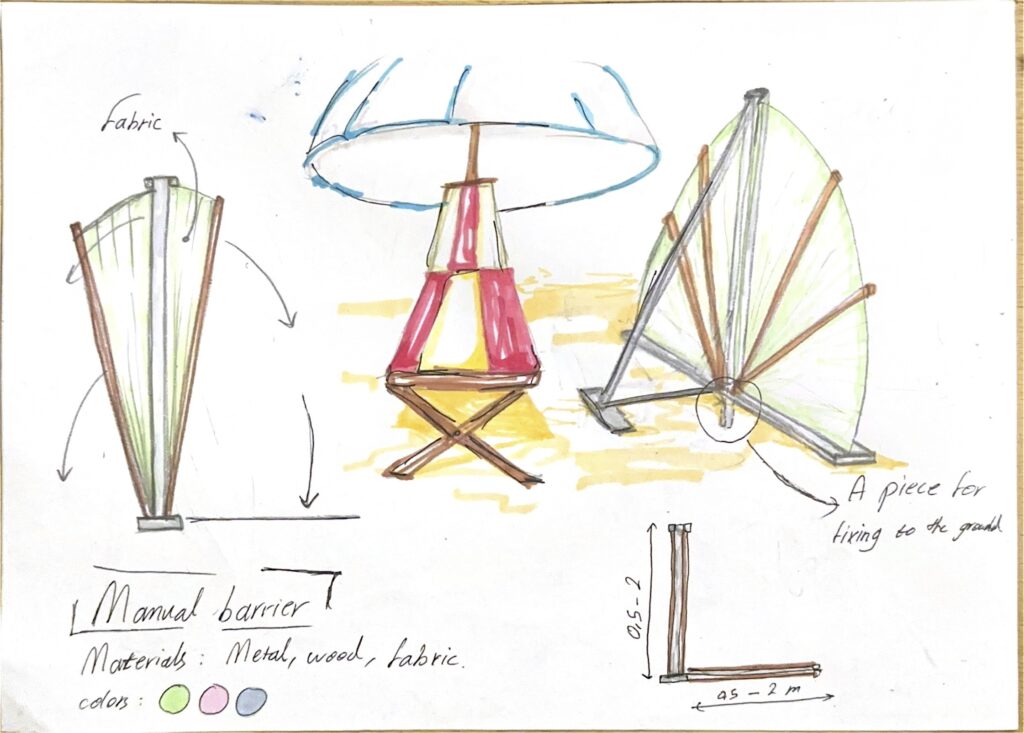 Fabric
A piece for
fixing to the ground
0,5 - 2
0,5 - 2 m
Manual barrier
Materials: Metal, wood, fabric.
colors: